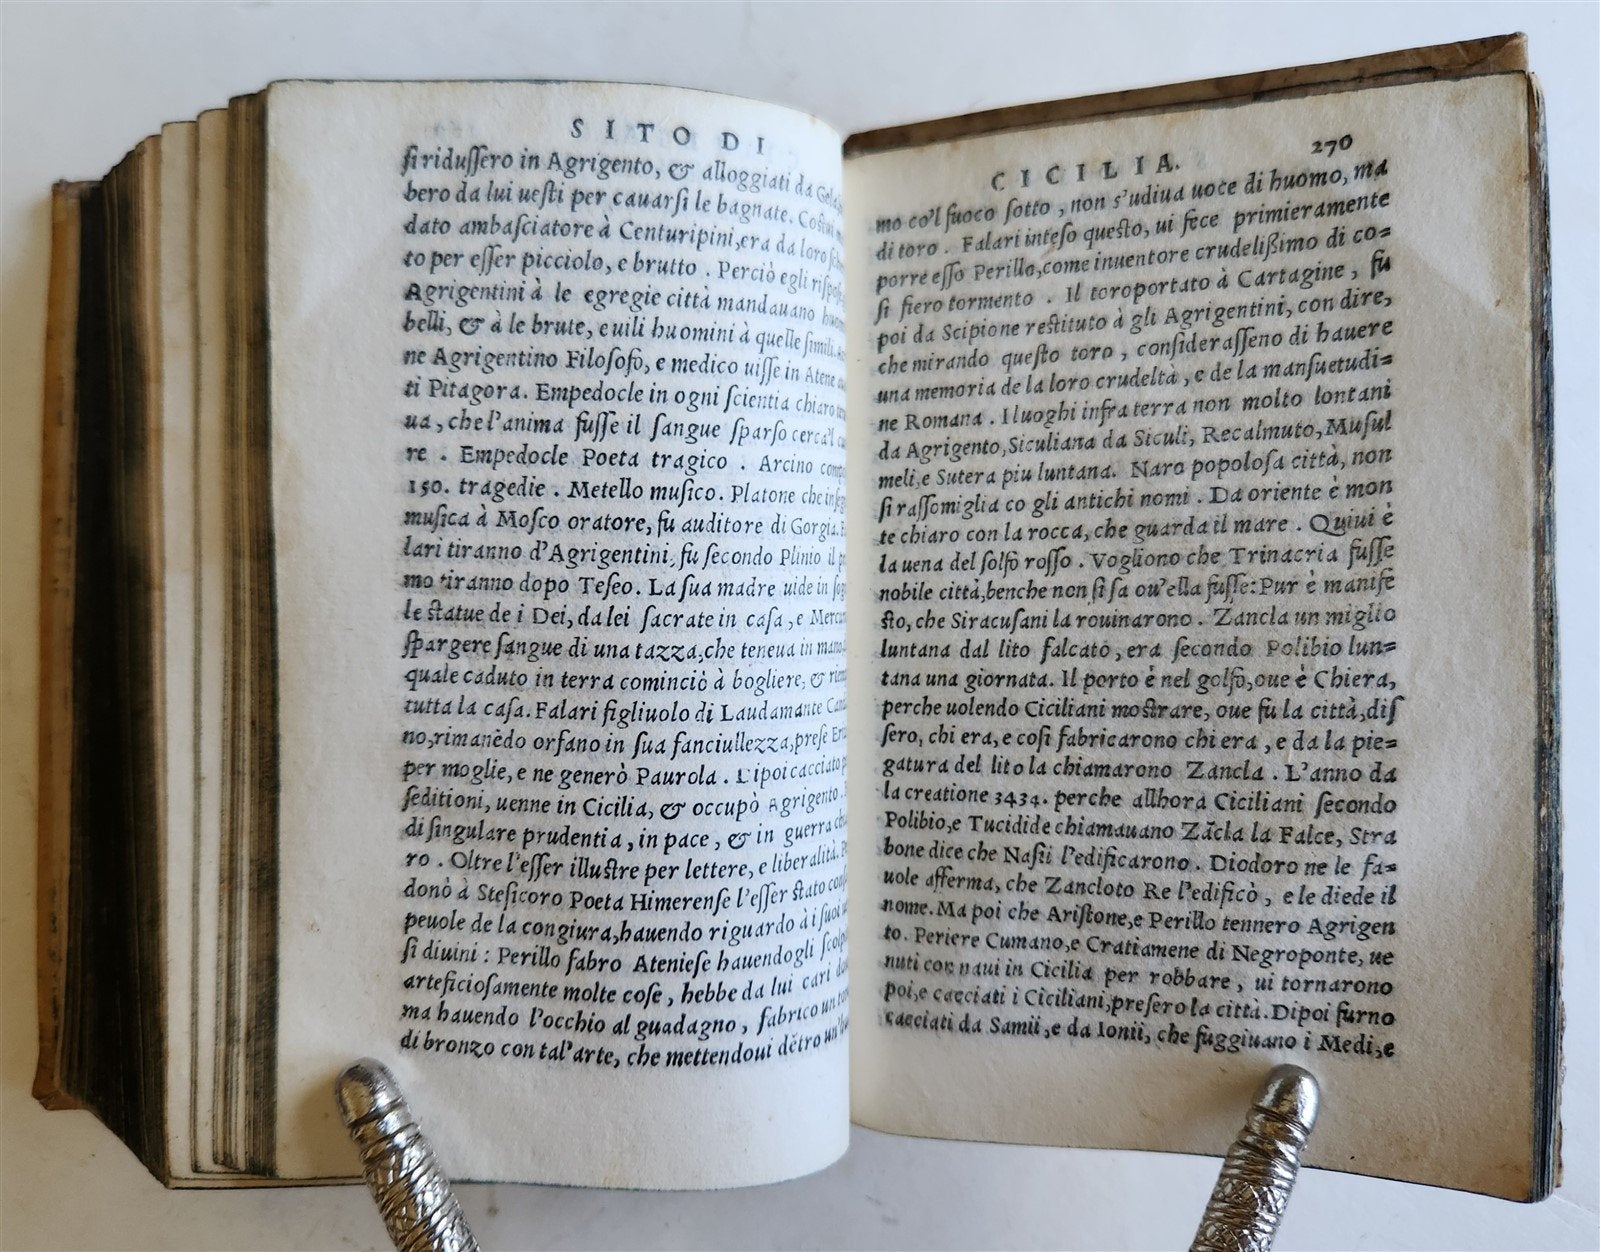 SITO DI
ſi riduſſero in Agrigento, & alloggiati da
bero da lui ueſti per cavarſi le bagnate.
dato ambaſciatore à Centuripini, era da loro
to per eſſer picciolo, e brutto . Perciò egli
Agrigentini à le egregie città mandauano
belli, & à le brute, e uili huomini à quelle ſimili.
ne Agrigentino Filoſofo, e medico uiſſe in Atene
ti Pitagora. Empedocle in ogni ſcientia chiaro
ua, che l'anima fuſſe il ſangue ſparſo cerca'l
re . Empedocle Poeta tragico . Arcino
150. tragedie . Metello muſico. Platone che
muſica à Moſco oratore, fu auditore di Gorgia.
lari tiranno d'Agrigentini, fu ſecondo Plinio il
mo tiranno dopo Teſeo. La ſua madre uide in
le ſtatue de i Dei, da lei ſacrate in caſa, e
ſpargere ſangue di una tazza, che teneua in mano
quale caduto in terra cominciò à bogliere, &
tutta la caſa. Falari figliuolo di Laudamante
no, rimanēdo orfano in ſua fanciullezza, preſe
per moglie, e ne generò Paurola . Dipoi cacciato
ſeditioni, uenne in Cicilia, & occupò Agrigento.
di ſingulare prudentia, in pace, & in guerra
ro . Oltre l'eſſer illuſtre per lettere, e liberalità.
donò à Steſicoro Poeta Himerenſe l'eſſer ſtato
peuole de la congiura, hauendo riguardo à i ſuoi
ſi diuini : Perillo fabro Atenieſe hauendogli
arteficioſamente molte coſe, hebbe da lui cari
ma hauendo l'occhio al guadagno, fabrico un
di bronzo con tal'arte, che mettendoui dētro
270
CICILIA.
mo co'l fuoco ſotto, non s'udiua uoce di huomo, ma
di toro . Falari inteſo queſto, ui fece primieramente
porre eſſo Perillo, come inuentore crudelißimo di co=
ſi fiero tormento . Il toro portato à Cartagine, fu
poi da Scipione reſtituto à gli Agrigentini, con dire,
che mirando queſto toro, conſideraſſeno di hauere
una memoria de la loro crudeltà, e de la manſuetudi=
ne Romana . I luoghi infra terra non molto lontani
da Agrigento, Siculiana da Siculi, Recalmuto, Muſul
meli, e Sutera piu luntana. Naro popoloſa città, non
ſi raſſomiglia co gli antichi nomi . Da oriente è mon
te chiaro con la rocca, che guarda il mare . Quiui è
la uena del ſolfo roſſo . Vogliono che Trinacria fuſſe
nobile città, benche non ſi ſa ou'ella fuſſe: Pur è manife
ſto, che Siracuſani la rouinarono . Zancla un miglio
luntana dal lito falcato, era ſecondo Polibio lun=
tana una giornata. Il porto è nel golfo, oue è Chiera,
perche uolendo Ciciliani moſtrare, oue fu la città, diſ
ſero, chi era, e coſi fabricarono chi era, e da la pie=
gatura del lito la chiamarono Zancla . L'anno da
la creatione 3434. perche allhora Ciciliani ſecondo
Polibio, e Tucidide chiamauano Zācla la Falce, Stra
bone dice che Naſii l'edificarono . Diodoro ne le fa=
uole afferma, che Zancloto Re l'edificò, e le diede il
nome. Ma poi che Ariſtone, e Perillo tennero Agrigen
to. Periere Cumano, e Cratiamene di Negroponte, ue
nuti con naui in Cicilia per robbare, ui tornarono
poi, e cacciati i Ciciliani, preſero la città. Dipoi furno
cacciati da Samii, e da Ionii, che fuggiuano i Medi, e